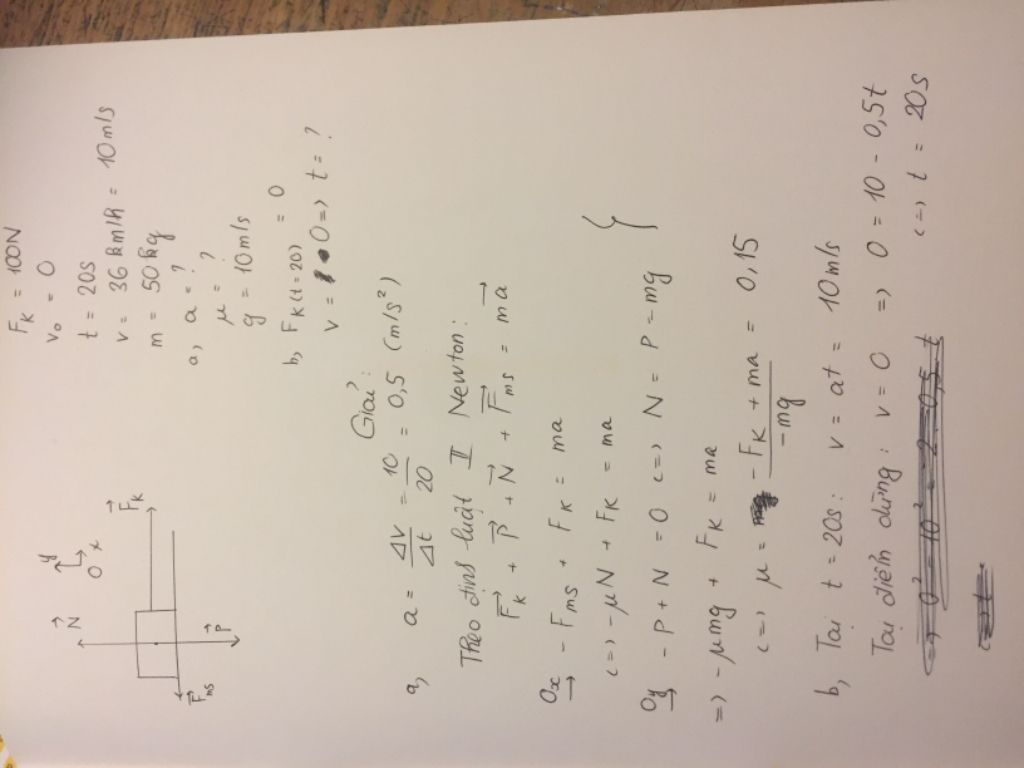 N
y
O x
F_K
F_ms
P
F_K = 100N
v₀ = 0
t = 20s
v = 36 km/h = 10m/s
m = 50kg
a, a = ?
μ = ?
g = 10m/s
b, F_K(t = 20s) = 0
v = 0 => t = ?
Giải:
a, a = Δv/Δt = 10/20 = 0,5 (m/s²)
Theo định luật II Newton:
F_K + P + N + F_ms = ma
Ox - F_ms + F_K = ma
<=> - μN + F_K = ma
Oy - P + N = 0 <=> N = P = mg
=> - μmg + F_K = ma
<=> μ = (- F_K + ma)/(-mg) = 0,15
b, Tại t = 20s: v = at = 10m/s
Tại điểm dừng: v = 0 => 0 = 10 - 0,5t
<=> t = 20s